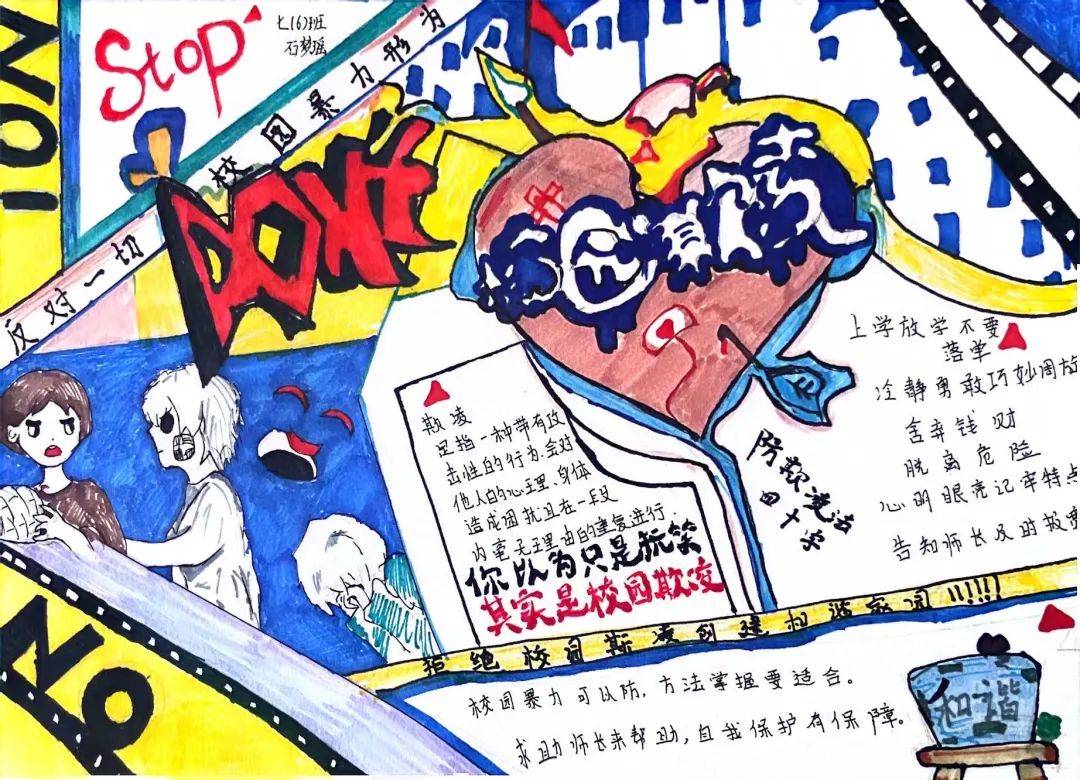 Stop
七(6)班
石梦瑶
反对一切校园暴力形为
DON't
欺凌
是指一种带有攻
击性的行为.会对
他人的心理、身体
造成困扰且在一段
内毫无理由的重复进行.
你以为只是玩笑
其实是校园欺凌
防欺凌法
四十字
上学放学不要
落单
冷静勇敢巧妙周旋
舍弃钱财
脱离危险
心明眼亮记牢特点
告知师长及时报
NO
拒绝校园欺凌创建和谐家园!!!!!
校园暴力可以防,方法掌握要适合。
求助师长来帮助,自我保护有保障。
和谐